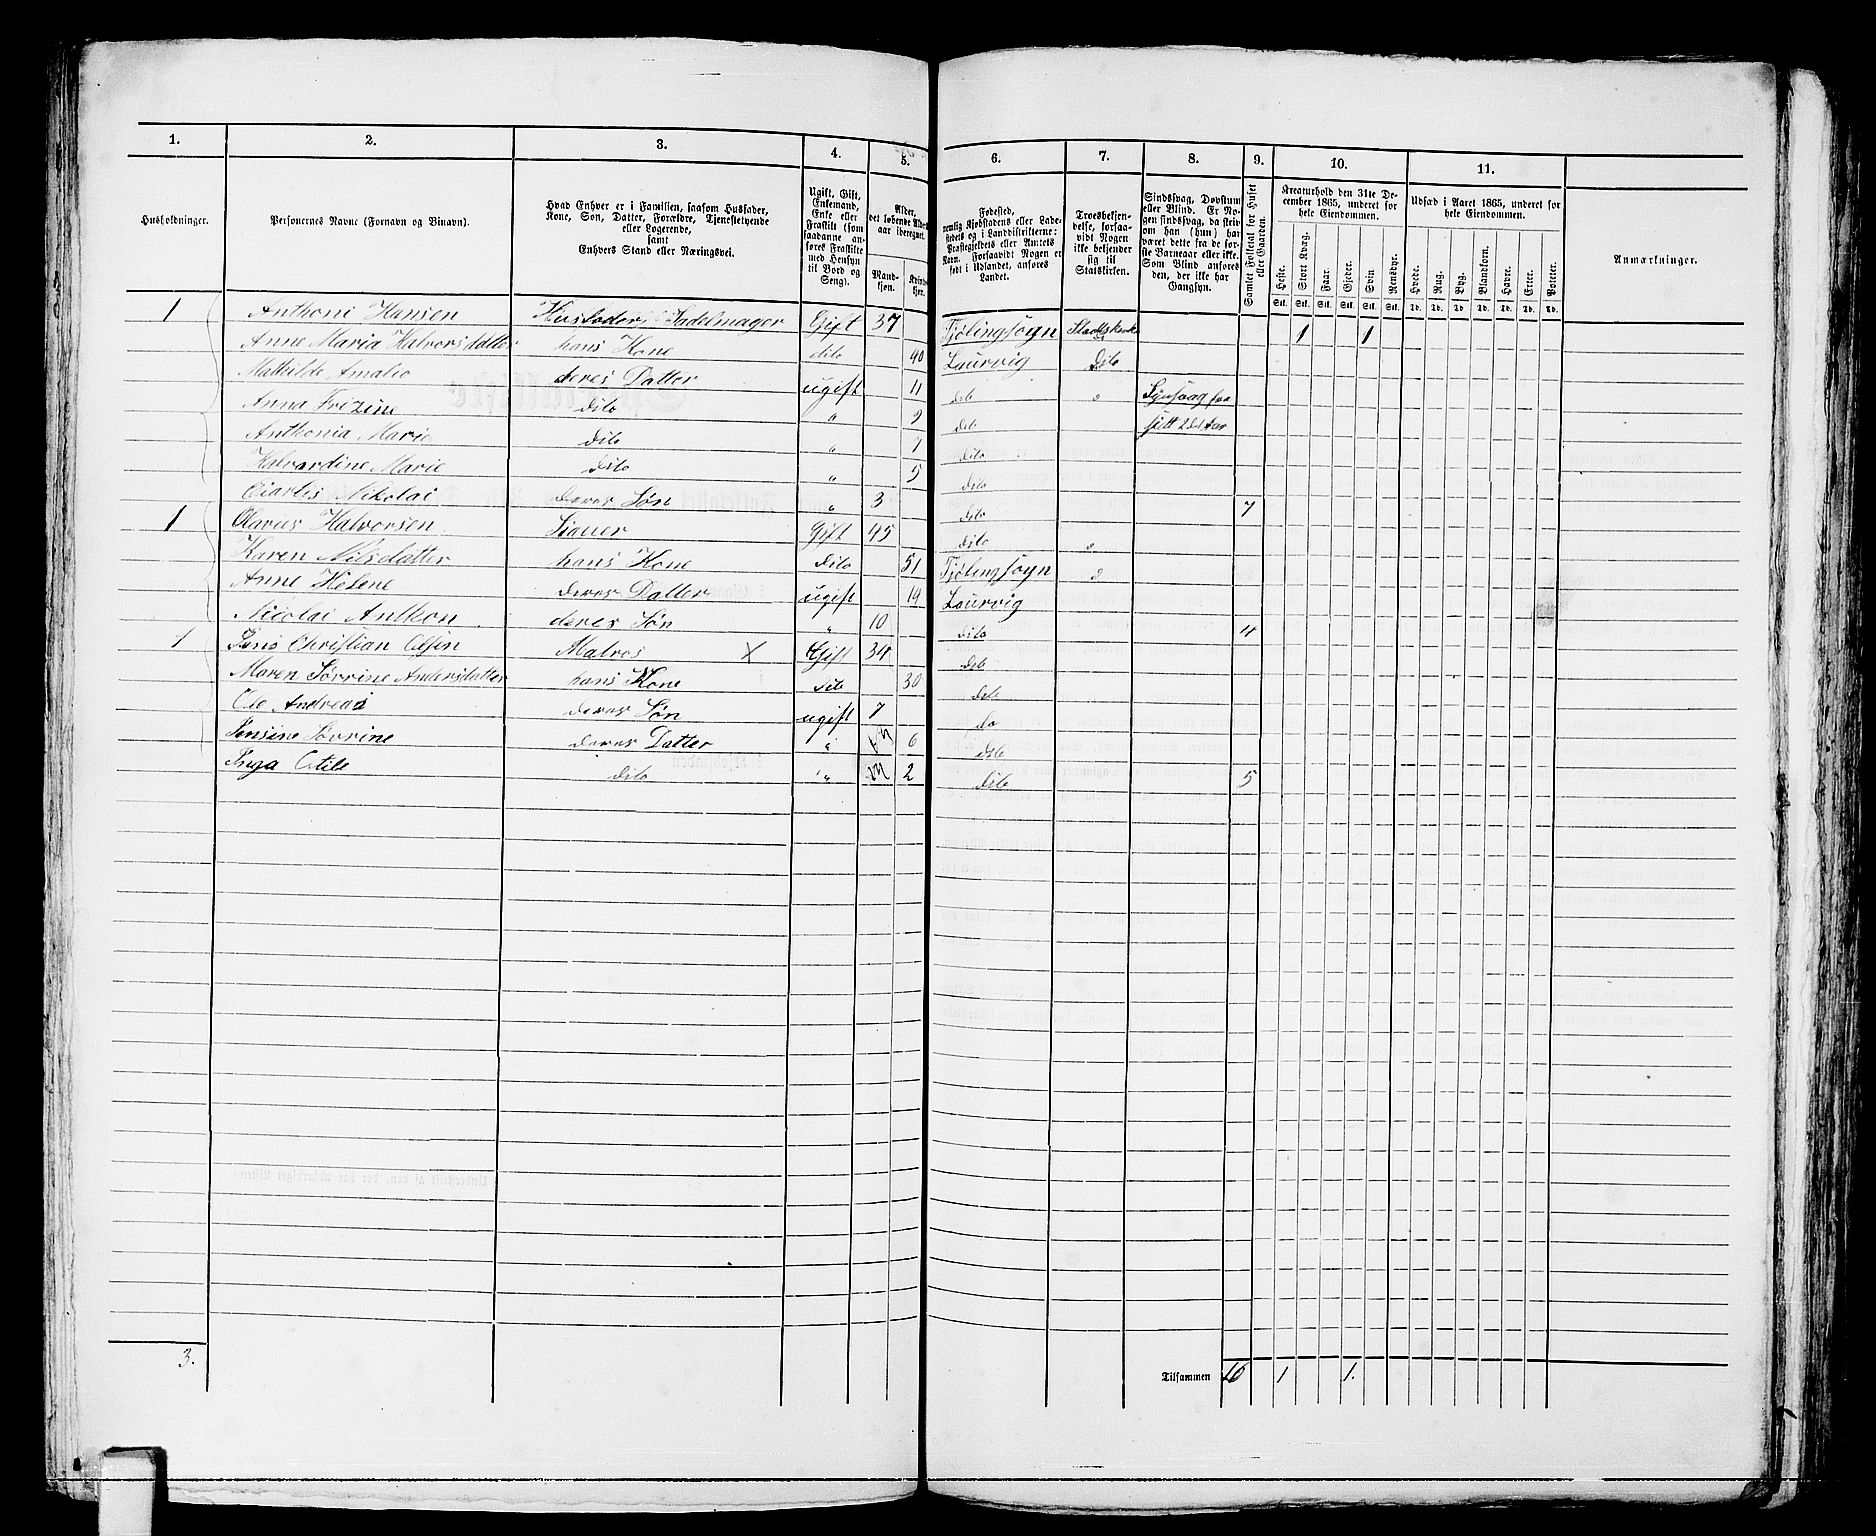 1. 2. 3. 4. 5. 6. 7. 8. 9. 10. 11.
Husholdninger.
Personernes Navne (Fornavn og Binavn).
Hvad Enhver er i Familien, saasom Husfader,
Kone, Søn, Datter, Forældre, Tjenestetyende
eller Logerende,
samt
Enhvers Stand eller Næringsvei.
Ugift, Gift,
Enkemand,
Enke eller
Fraskilt (som
saadanne an-
føres Fraskilte
med Hensyn
til Bord og
Seng).
Alder,
det løbende Alders-
aar iberegnet.
Mand-
kjøn.
Kvinde-
kjøn.
Fødested,
nemlig Kjøbstadens eller Lade-
stedets og i Landdistrikterne:
Præstegjeldets eller Amtets
Navn. Forsaavidt Nogen er
født i Udlandet, anføres
Landet.
Troesbekjen-
delse, forsaa-
vidt Nogen
ikke bekjender
sig til
Statskirken.
Sindssvag, Døvstum
eller Blind. Er No-
gen sindssvag, da skri-
ves om han (hun) har
været dette fra de før-
ste Barneaar eller ikke.
Som Blind anføres
den, der ikke har
Gangsyn.
Samlet Folketal for Huset
eller Gaarden.
Kreaturhold den 31te De-
cember 1865, underet for
hele Eiendommen.
Heste. Stort Kvæg. Faar. Gjeder. Svin. Rensdyr.
Stk. Stk. Stk. Stk. Stk. Stk.
Udsæd i Aaret 1865, underet for
hele Eiendommen.
Hvede. Rug. Byg. Blandkorn. Havre. Erter. Poteter.
Td. Td. Td. Td. Td. Td. Td.
Anmærkninger.
1 Anthoni Hansen Husfader, Sadelmager Gift 37 Tjølingsogn Statskirke 1 1
Anne Maria Halvorsdatter hans Kone dito 40 Laurvig dito
Mathilde Amalie deres Datter ugift 11 dito "
Anna dito " 9 dito
Anthonia Marie dito " 7 dito
Halvardine Marie dito " 5 dito
Nikolai deres Søn " 3 dito 7
1 Olavus Halvorsen Gift 45 dito "
Karen Nilsdatter hans Kone dito 51 Tjølingsogn "
Anne Helene deres Datter ugift 14 Laurvig
Nicolai Anthon deres Søn " 10 dito 4
1 Jens Christian Olsen X Gift 34 dito
Maren Sørrine Andersdatter hans Kone dito 30 dito
Ole Andreas deres Søn ugift 7 do
Jensine Sovrine deres Datter " 6 dito
Inga dito " 2 dito 5
3.
Tilsammen 16 1 1.